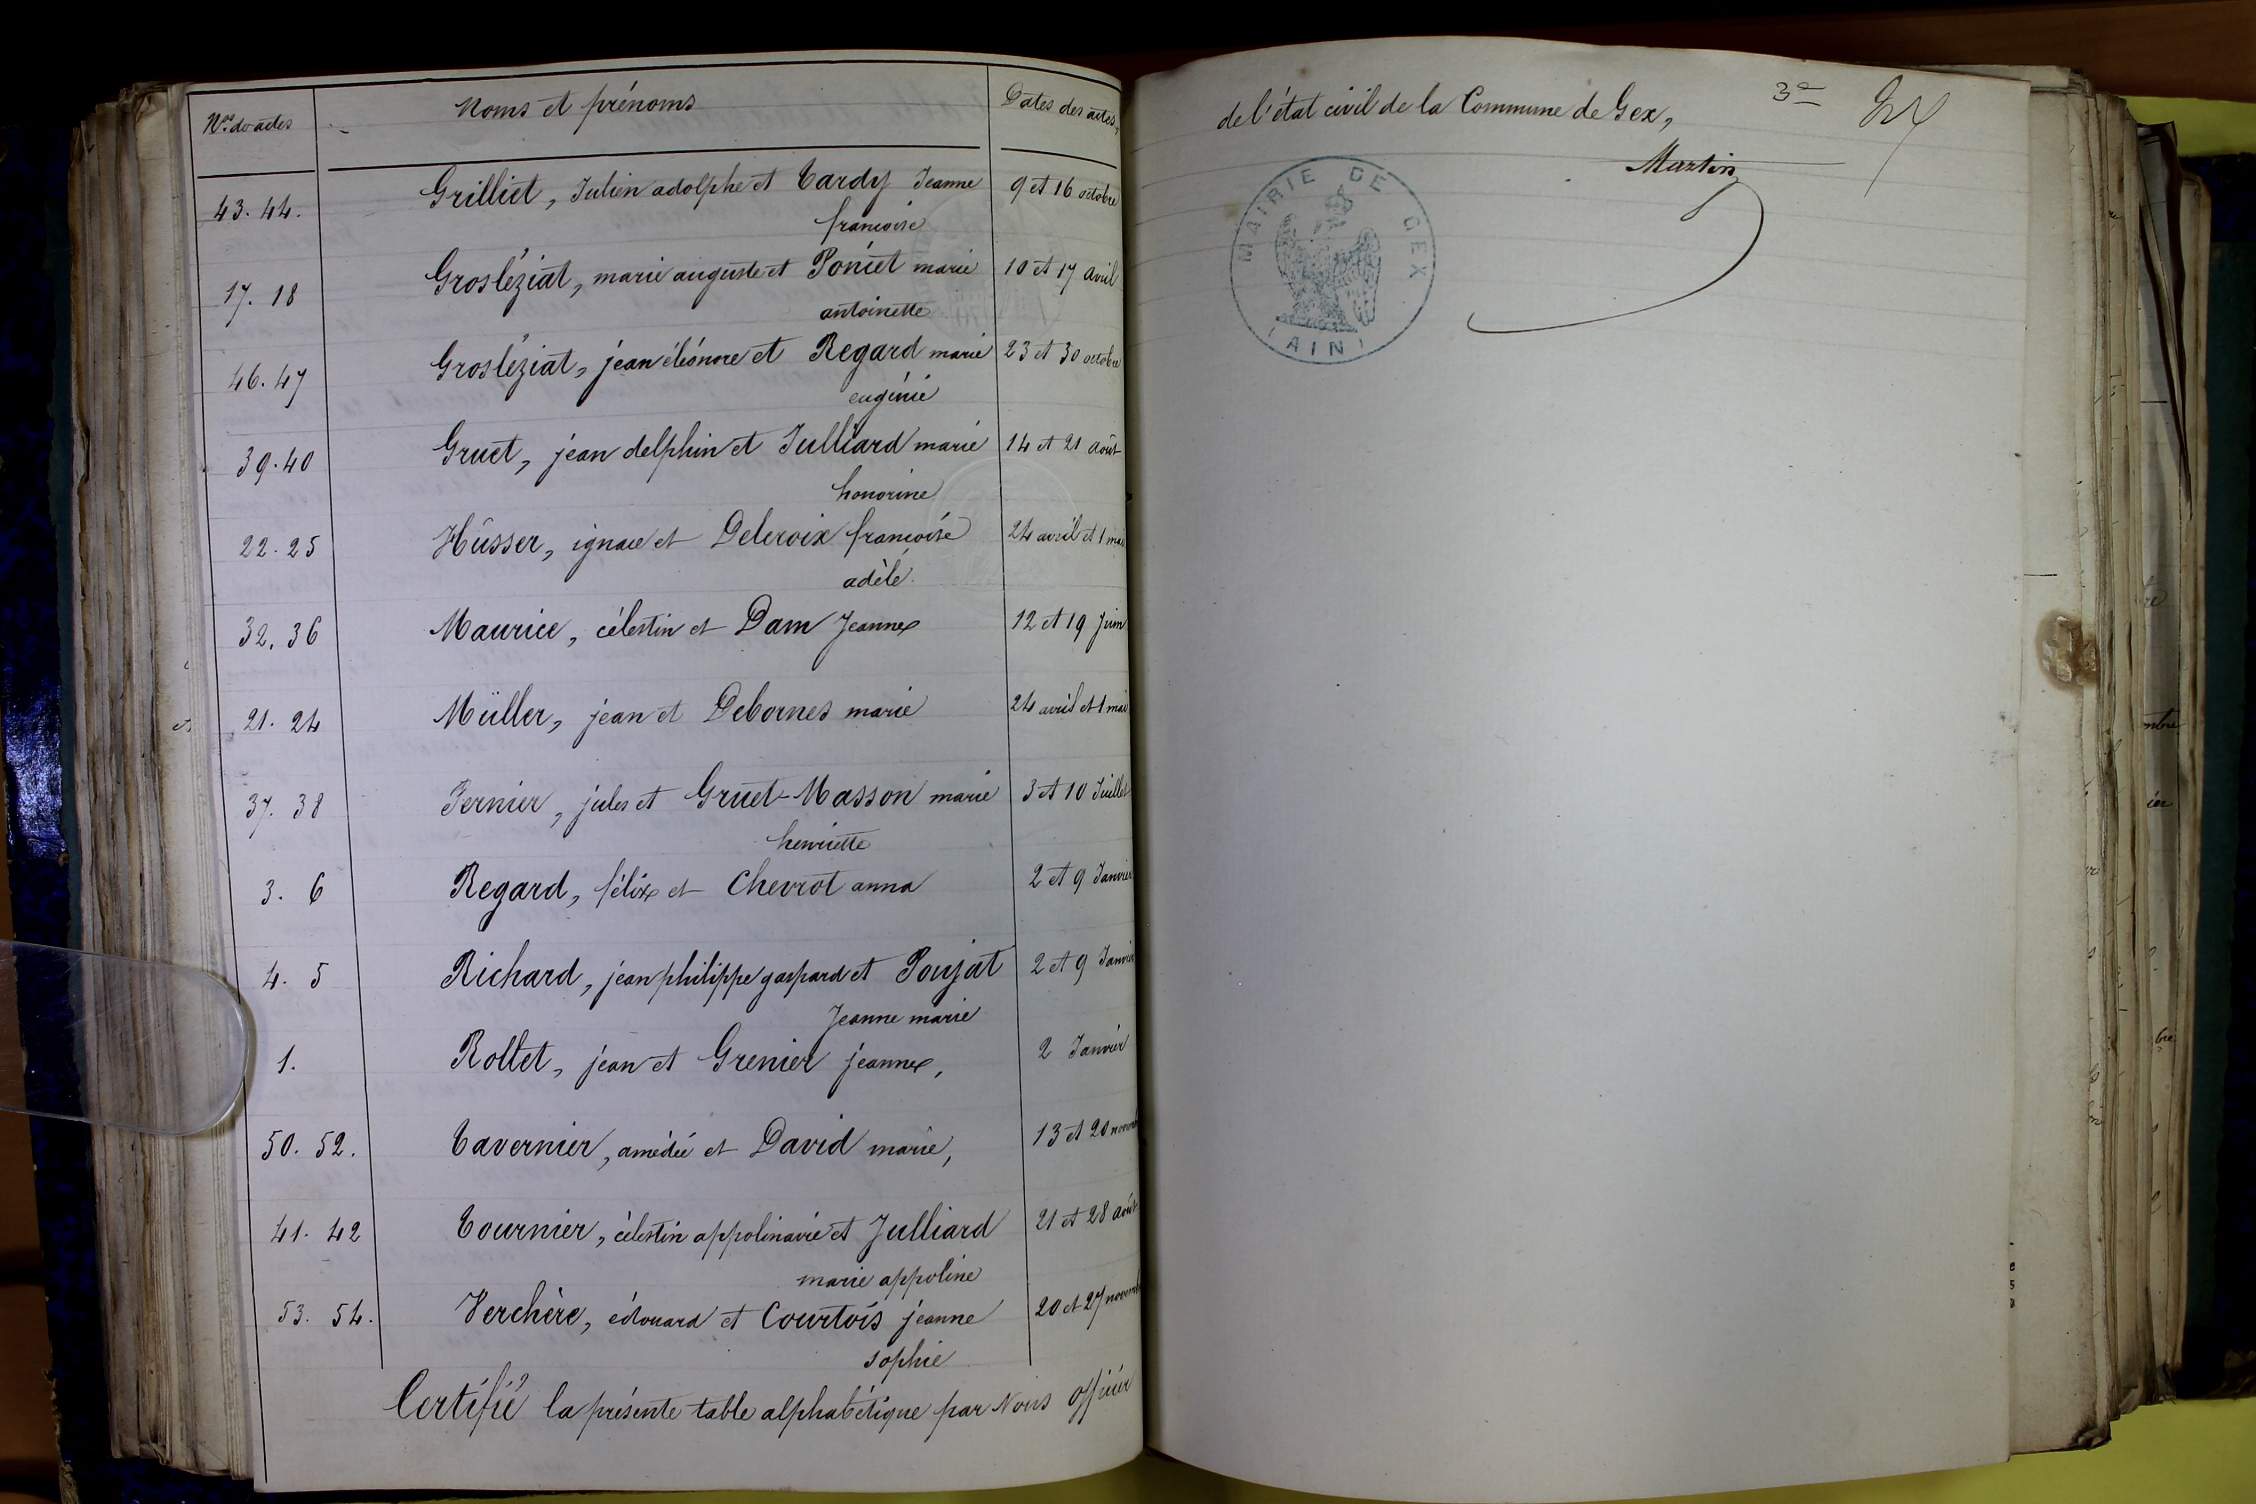 Nos des actes Noms et prénoms Dates des actes
43. 44. Grilliet, Julien adolphe et Tardy Jeanne 9 et 16 octobre
francoise
17. 18 Grosléziat, marie auguste et Poncet marie 10 et 17 avril
antoinette
46. 47 Grosléziat, jean éléonore et Regard marie 23 et 30 octobre
eugénie
39. 40 Gruet, jean delphin et Julliard marie 14 et 21 août
honorine
22. 25 Hüsser, ignace et Delcroix francoise 24 avril et 1 mai
adèle
32. 36 Maurice, célestin et Dam Jeanne 12 et 19 Juin
21. 24 Müller, jean et Debornes marie 24 avril et 1 mai
37. 38 Pernier, jules et Gruet-Masson marie 3 et 10 Juillet
henriette
3. 6 Regard, félix et Chevrot anna 2 et 9 Janvier
4. 5 Richard, jean philippe gaspard et Poujat 2 et 9 Janvier
Jeanne marie
1. Rollet, jean et Grenier jeanne, 2 Janvier
50. 52. Tavernier, amédée et David marie, 13 et 20 novemb
41. 42 Tournier, célestin appolinaire et Julliard 21 et 28 août
marie appoline
53. 54. Verchère, édouard et Courtois jeanne 20 et 27 novemb
sophie
Certifié la présente table alphabétique par Nous officier
de l'état civil de la Commune de Gex,
Martin
MAIRIE DE GEX
(AIN)